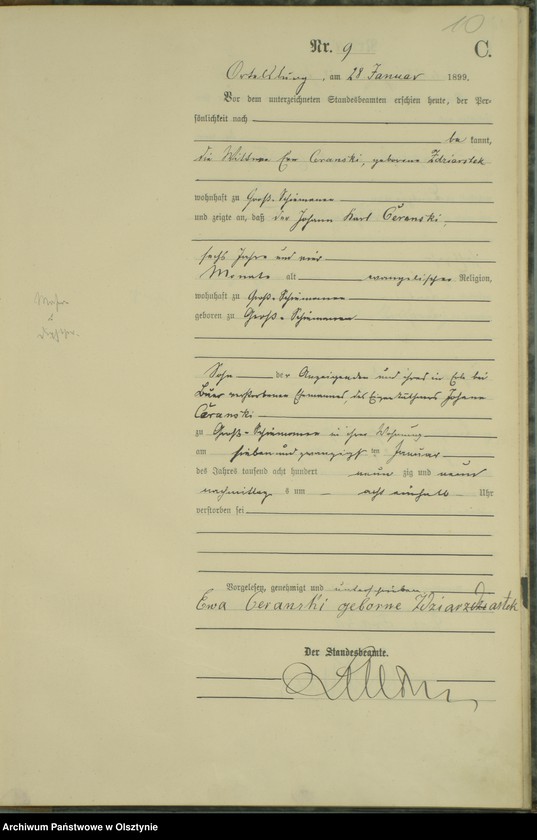 10
Nr. 9
C.
Ortelsburg, am 28 Januar 1899.
Vor dem unterzeichneten Standesbeamten erschien heute, der Per-
sönlichkeit nach
be kannt,
die Wittwe Eva Ceranski, geborene Zdziarstek
wohnhaft zu Groß-Schiemanen
und zeigte an, daß der Johann Karl Ceranski,
sechs Jahre und vier
Monate alt evangelischer Religion,
wohnhaft zu Groß-Schiemanen
geboren zu Groß-Schiemanen
Sohn der Anzeigenden und ihres in Erle bei
Buer verstorbenen Ehemannes, des Eigenkäthners Johann
Ceranski
zu Groß-Schiemanen in ihrer Wohnung
am siebenundzwanzigsten Januar
des Jahres tausend acht hundert neun zig und neun
nachmittag s um acht einhalb Uhr
verstorben sei
Vorgelesen, genehmigt und unterschrieben
Ewa Ceranski geborne
Der Standesbeamte.
Archiwum Państwowe w Olsztynie